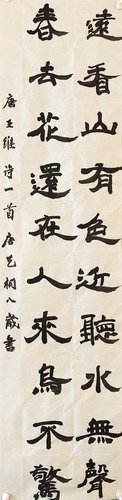 遠看山有色近聽水無聲
春去花還在人來鳥不驚
唐王維詩一首